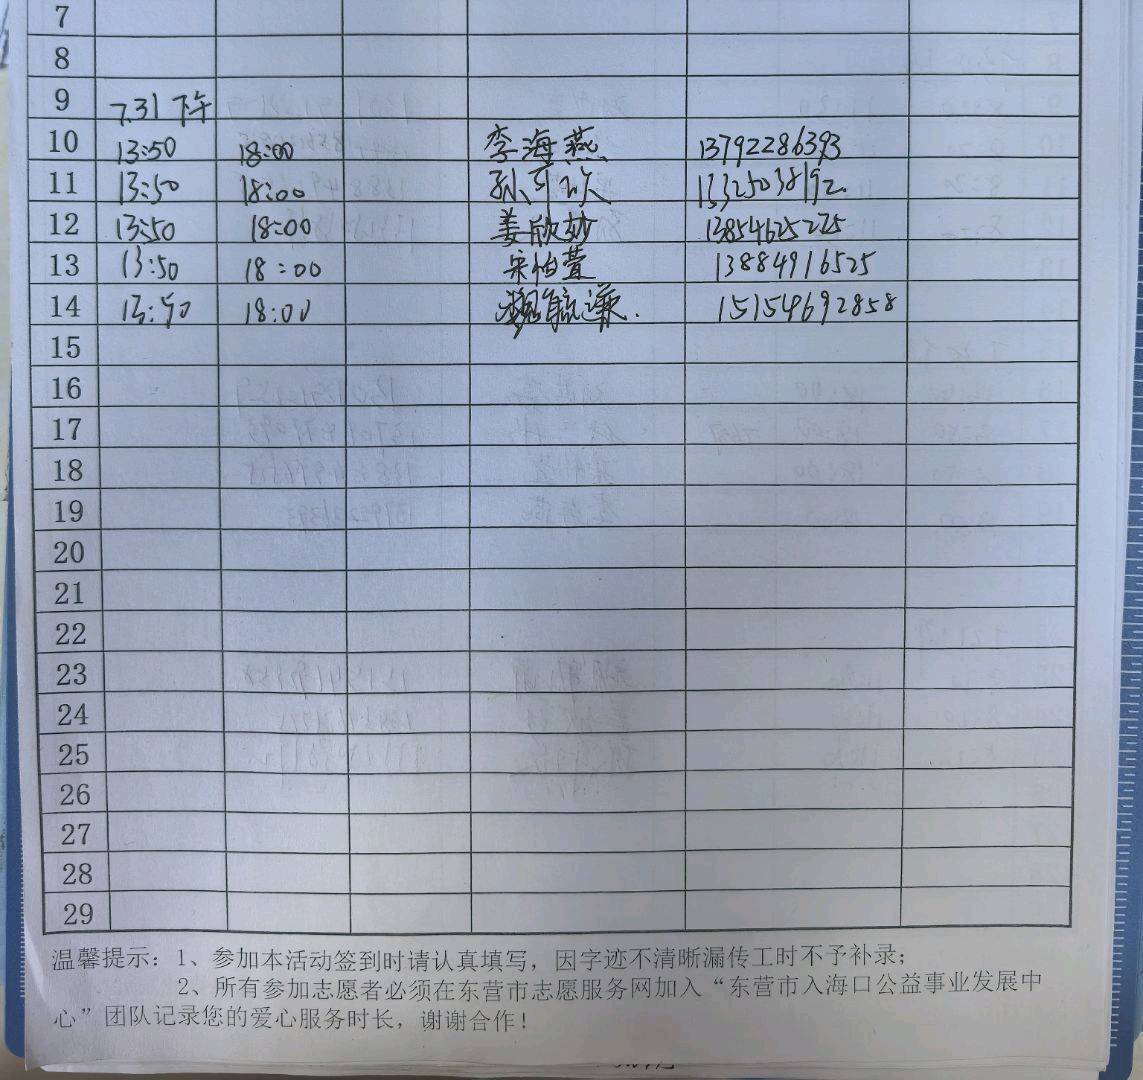 7
8
9 7.31 下午
10 13:50 18:00 李海燕 13792286393
11 13:50 18:00 孙 13325038192
12 13:50 18:00 姜欣妙 13854625225
13 13:50 18:00 宋怡萱 13884916525
14 13:50 18:00 魏毓谦 15154692858
15
16
17
18
19
20
21
22
23
24
25
26
27
28
29
温馨提示：1、参加本活动签到时请认真填写，因字迹不清晰漏传工时不予补录；
2、所有参加志愿者必须在东营市志愿服务网加入“东营市入海口公益事业发展中
心”团队记录您的爱心服务时长，谢谢合作！